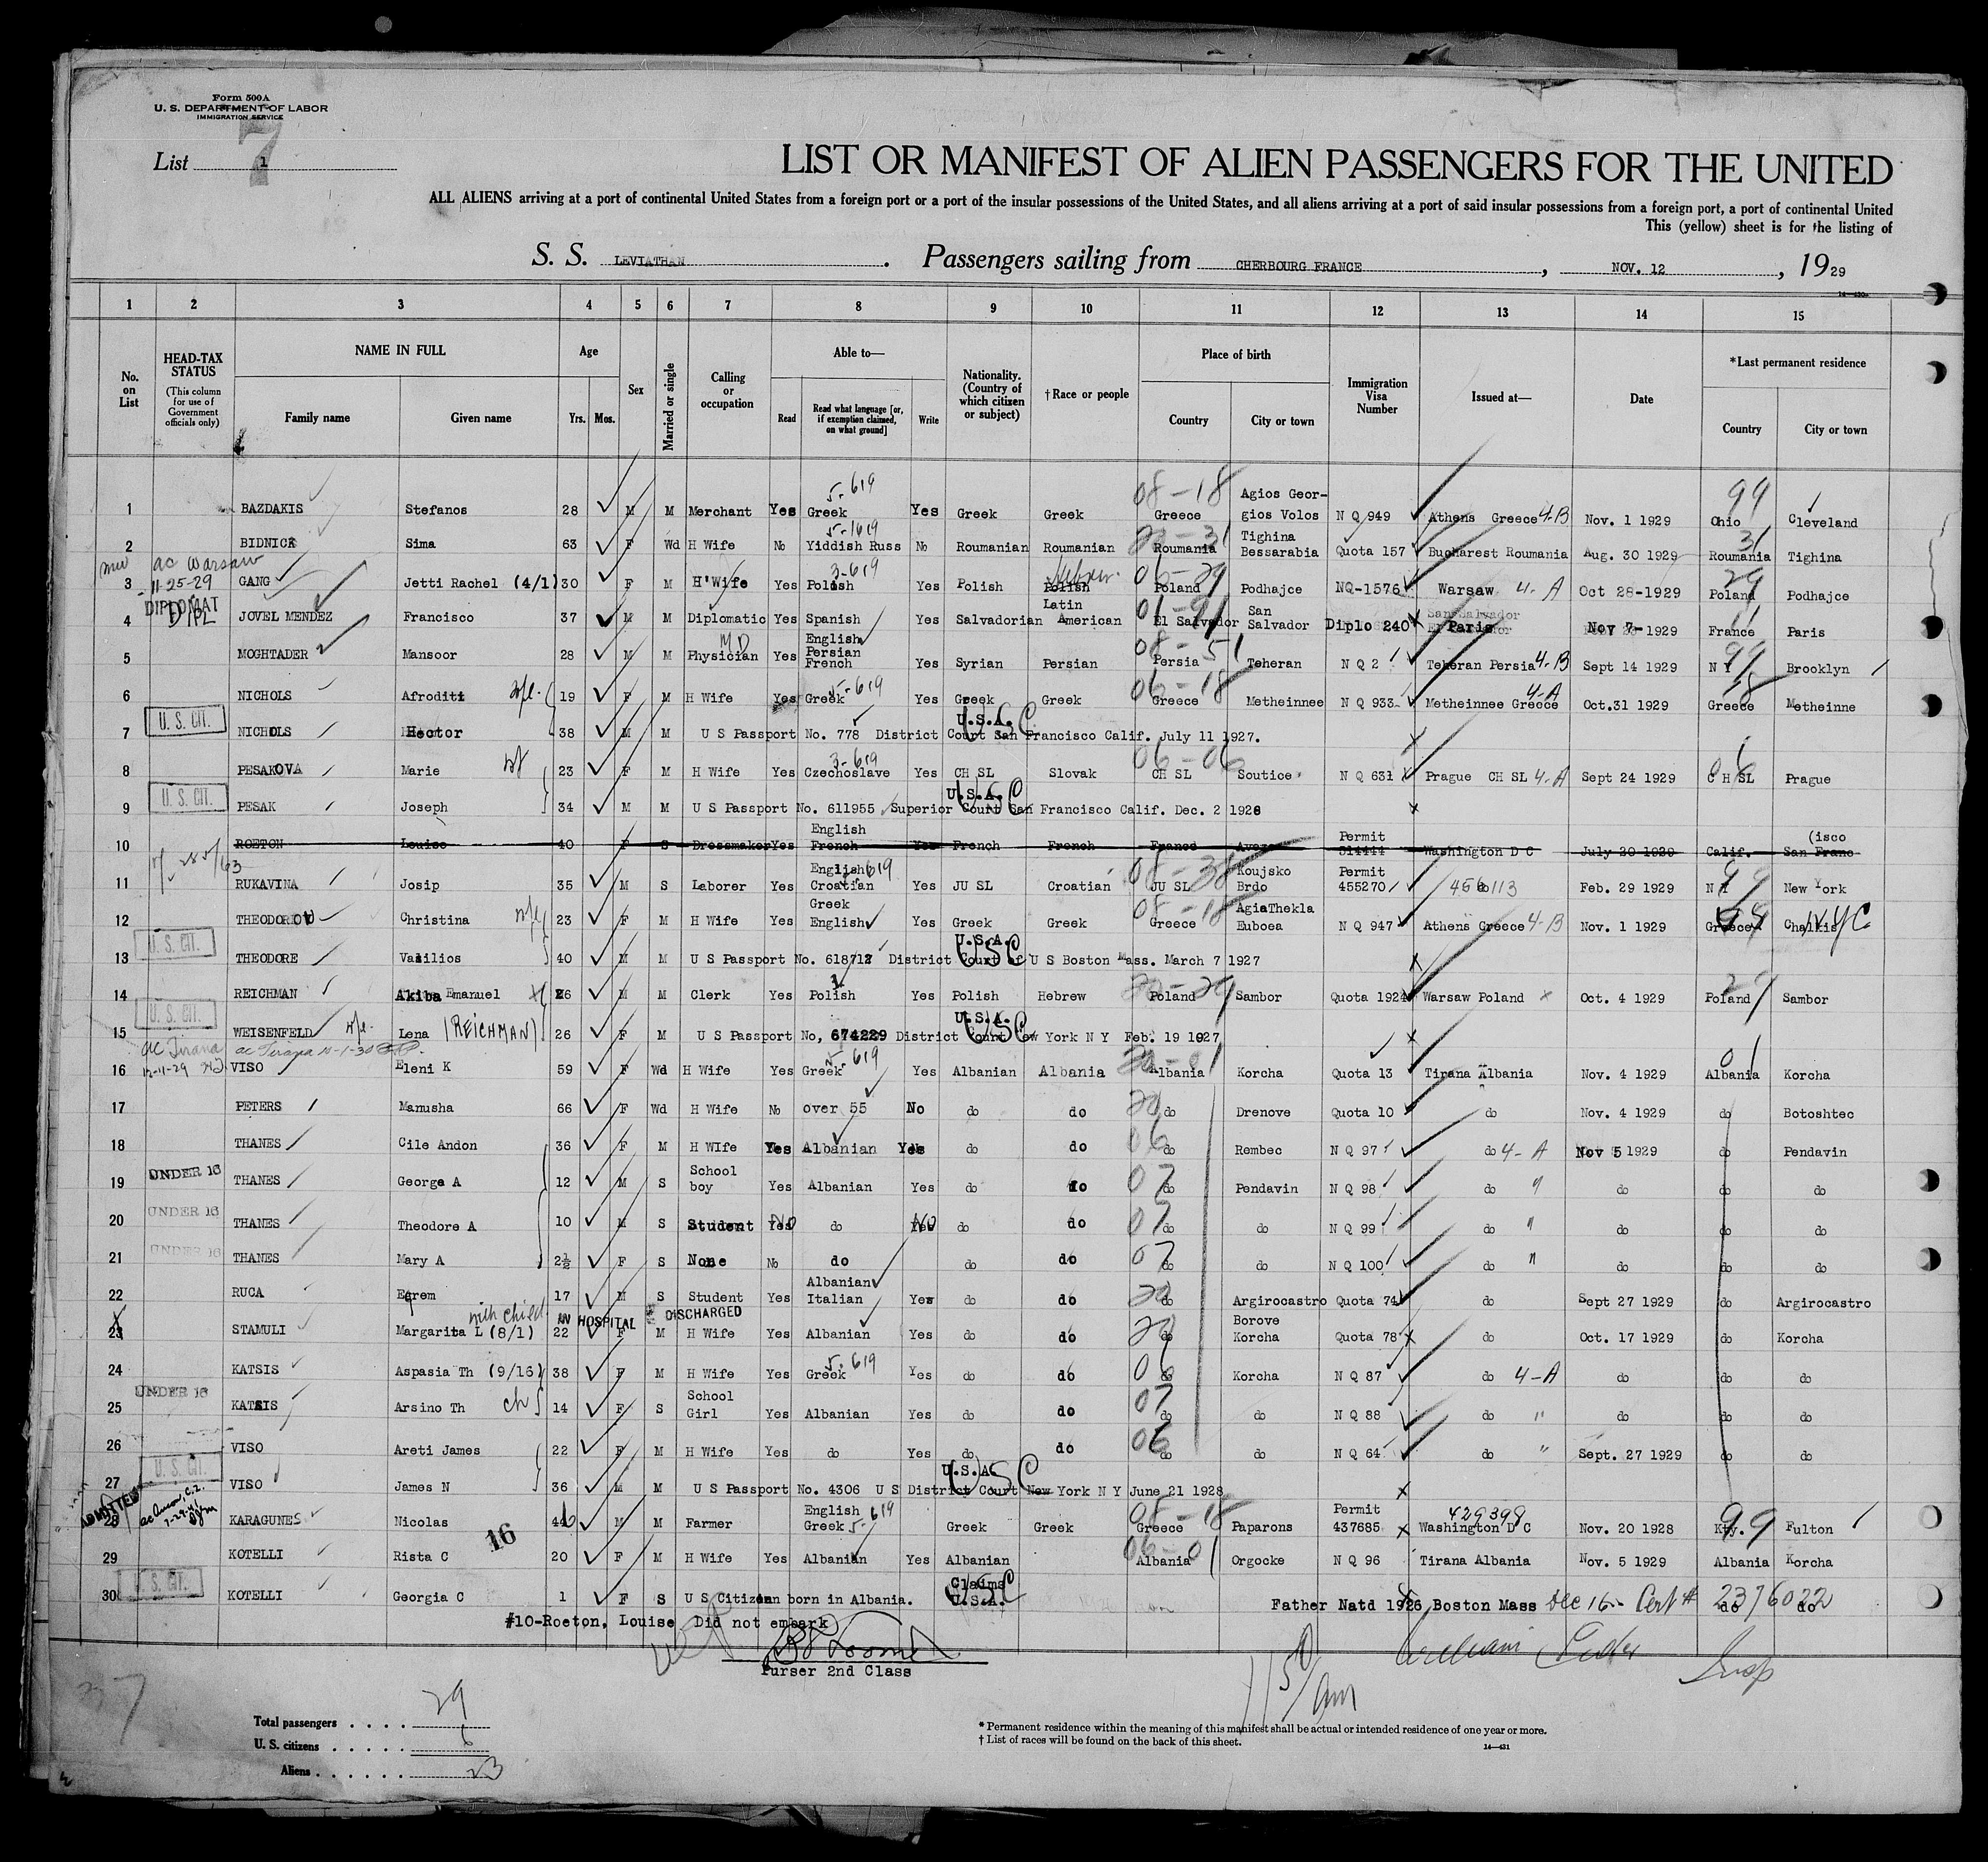 Form 500A
U. S. DEPARTMENT OF LABOR
IMMIGRATION SERVICE
7
List 1
LIST OR MANIFEST OF ALIEN PASSENGERS FOR THE UNITED
ALL ALIENS arriving at a port of continental United States from a foreign port or a port of the insular possessions of the United States, and all aliens arriving at a port of said insular possessions from a foreign port, a port of continental United
This (yellow) sheet is for the listing of
S. S. LEVIATHAN. Passengers sailing from CHERBOURG FRANCE, NOV. 12, 1929
1 2 3 4 5 6 7 8 9 10 11 12 13 14 15
No. on List
HEAD-TAX STATUS (This column for use of Government officials only)
NAME IN FULL Family name Given name
Age Yrs. Mos.
Sex
Married or single
Calling or occupation
Able to— Read Read what language [or, if exemption claimed, on what ground] Write
Nationality. (Country of which citizen or subject)
†Race or people
Place of birth Country City or town
Immigration Visa Number
Issued at—
Date
*Last permanent residence Country City or town
1 BAZDAKIS Stefanos 28 M M Merchant Yes Greek 5-619 Yes Greek Greek 08-18 Greece Agios Geor-gios Volos N Q 949 Athens Greece 4-B Nov. 1 1929 Ohio 99 Cleveland
2 BIDNICK Sima 63 F Wd H Wife No Yiddish Russ 5-1619 No Roumanian Roumanian Roumania Tighina Bessarabia Quota 157 Bucharest Roumania Aug. 30 1929 Roumania 31 Tighina
3 ac Warsaw 11-25-29 GANG Jetti Rachel (4/1) 30 F M H Wife Yes Polish 3-619 Yes Polish Polish Hebrew 06-29 Poland Podhajce NQ-1576 Warsaw 4-A Oct 28-1929 Poland 29 Podhajce
4 DIPLOMAT DIPL JOVEL MENDEZ Francisco 37 M M Diplomatic Yes Spanish Yes Salvadorian Latin American 01-91 El Salvador San Salvador Diplo 240 Paris Nov 7-1929 France Paris
5 MOGHTADER Mansoor 28 M M Physician MD Yes English Persian French Yes Syrian Persian 08-51 Persia Teheran N Q 2 Teheran Persia 4-B Sept 14 1929 N Y 99 Brooklyn
6 NICHOLS Afroditi wfe. 19 F M H Wife Yes Greek 5-619 Yes Greek Greek 06-18 Greece Metheinnee N Q 933 Metheinnee Greece 4-A Oct.31 1929 Greece 18 Metheinne
7 U. S. CIT. NICHOLS Hector 38 M M U S Passport No. 778 District Court San Francisco Calif. July 11 1927. U.S.A. USC
8 PESAKOVA Marie wf 23 F M H Wife Yes Czechoslave 3-619 Yes CH SL Slovak 06-06 CH SL Soutice N Q 631 Prague CH SL 4-A Sept 24 1929 C H SL 06 Prague
9 U. S. CIT. PESAK Joseph 34 M M U S Passport No. 611955 Superior Court San Francisco Calif. Dec. 2 1928 U.S.A. USC
10 ROETON Louise 40 F S Dressmaker Yes English French Yes French French France Permit 514444 Washington D C July 20 1929 Calif. San Franc (isco
11 RUKAVINA Josip 35 M S Laborer Yes English Croatian 619 Yes JU SL Croatian 08-38 JU SL Koujsko Brdo Permit 455270 Feb. 29 1929 N Y 99 New York
12 THEODOROU Christina wfe 23 F M H Wife Yes Greek English Yes Greek Greek 08-18 Greece AgiaThekla Euboea N Q 947 Athens Greece 4-B Nov. 1 1929 Greece 99 Chalkis NYC
13 U. S. CIT. THEODORE Vasilios 40 M M U S Passport No. 618712 District Court of U S Boston Mass. March 7 1927 U.S.A. USC
14 REICHMAN Akiba Emanuel 26 M M Clerk Yes Polish Yes Polish Hebrew 20-29 Poland Sambor Quota 1924 Warsaw Poland Oct. 4 1929 Poland 29 Sambor
15 U. S. CIT. WEISENFELD wfe. Lena (REICHMAN) 26 F M U S Passport No, 674229 District Court New York N Y Feb. 19 1927 U.S.A. USC
16 ac Tirana 12-11-29 ac Tirana 10-1-30 VISO Eleni K 59 F Wd H Wife Yes Greek 5-619 Yes Albanian Albania 20-01 Albania Korcha Quota 13 Tirana Albania Nov. 4 1929 Albania 01 Korcha
17 PETERS Manusha 66 F Wd H Wife No over 55 No do do 20 do Drenove Quota 10 do Nov. 4 1929 do Botoshtec
18 THANES Cile Andon 36 F M H WIfe Yes Albanian Yes do do 06 do Rembec N Q 97 do 4-A Nov 5 1929 do Pendavin
19 UNDER 16 THANES George A 12 M S School boy Yes Albanian Yes do do 07 do Pendavin N Q 98 do " do do do
20 UNDER 16 THANES Theodore A 10 M S Student Yes No do Yes No do do 07 do do N Q 99 do " do do do
21 UNDER 16 THANES Mary A 2½ F S None No do do do 07 do do N Q 100 do " do do do
22 RUCA Eqrem 17 M S Student Yes Albanian Italian Yes do do 20 do Argirocastro Quota 74 do Sept 27 1929 do Argirocastro
23 STAMULI Margarita L (8/1) with child IN HOSPITAL DISCHARGED 22 F M H Wife Yes Albanian Yes do do 20 do Borove Korcha Quota 78 do Oct. 17 1929 do Korcha
24 KATSIS Aspasia Th (9/16) 38 F M H Wife Yes Greek 5-619 Yes do do 06 do Korcha N Q 87 do 4-A do do do
25 UNDER 16 KATSIS Arsino Th ch 14 F S School Girl Yes Albanian Yes do do 07 do do N Q 88 do " do do do
26 VISO Areti James 22 F M H Wife Yes do Yes do do 06 do do N Q 64 do " Sept. 27 1929 do do
27 U. S. CIT. VISO James N 36 M M U S Passport No. 4306 U S District Court New York N Y June 21 1928 U.S.A. USC
28 ADMITTED KARAGUNES Nicolas 16 M M Farmer English Greek 5-619 Greek Greek 08-18 Greece Paparons Permit 437685 429398 Washington D C Nov. 20 1928 Kty. 99 Fulton
29 KOTELLI Rista C 20 F M H Wife Yes Albanian Yes Albanian 06-01 Albania Orgocke N Q 96 Tirana Albania Nov. 5 1929 Albania Korcha
30 U. S. CIT. KOTELLI Georgia C 1 F S U S Citizen born in Albania. Claims U.S.A. USC Father Natd 1926 Boston Mass Dec 16- Cert # 2376022 do do
#10-Roeton, Louise Did not embark
Purser 2nd Class
1150/am
Insp
Total passengers . . . . 29
U. S. citizens . . . . . 6
Aliens . . . . . . 23
* Permanent residence within the meaning of this manifest shall be actual or intended residence of one year or more.
† List of races will be found on the back of this sheet.
14—431